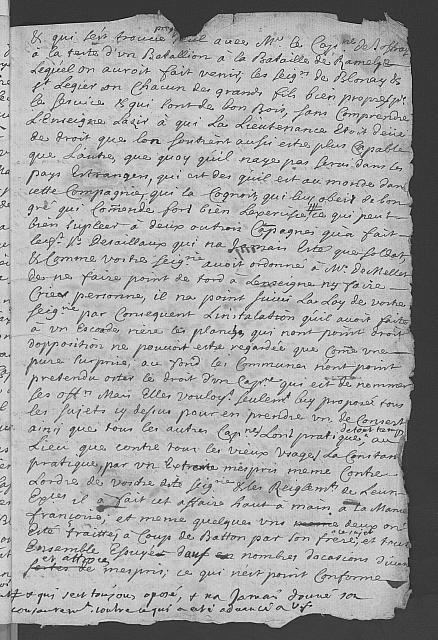 & qui s'est trouvé seul avec Mr. le Capne de
à la teste d'un Batallion à la Bataille de Ramelie
Lequel on auroit fait venir, les seigrs de Blonay &
st Legier on Chacun des grands fils bien propres pr
le service & qui sont de bon Bois, sans Comprendre
L'enseigne à qui La Lieutenance étoit deue
de droit que l'on soutient aussi estre plus Capable
que L'autre, que quoy qu'il naye pas servi dans les
pays Estrangers, qui est des qu'il est au monde dans
cette Compagnie, qui la Cognoit qui luy obeit de bon
gré qui Comende fort bien L'exersisse qui peut
bien supleer à deux ou trois Capagnes qu'a fait
le sr. Desaillaux qui na Jamais esté que soldat
& Comme vostre seigrie avoit ordonné à Mr. de Mellet
de ne faire point de tord à L'enseigne ny faire
Crier personne, il na point suivi La Loy de vostre
seigrie par Consequent L'instalation qu'il avoit faite
à vn derière les planches, qui nont point droit
d'opposition ne pouvoit estre regardée que Comme une
pure surprise, au fond les Communes nont point
pretendu oster le droit d'un Capne qui est de nommer
les offrs Mais Elles vouloyt seulemt luy proposer tous
les sujets cy desus pour en prendre un de Consert
ainsi que tous les autres Capnes L'ont pratiqué de tout temps au
Lieu que contre tous les vieux Usages La Constante
pratique, par un Extreme mespris meme Contre
L'ordre de vostre dite seigrie & les Reiglemts de Leurs
Exces il à fait cet affaire haut à main, à la Mannie
francoise, et meme quelques uns deux ont
Esté traittés à Coups de Batton par son frère, et tous
Ensemble Essuyé dans nombre d'ocasions d'un
mespris; ce qui n'est point Conforme
& qui s'est toujours oposé, & na Jamais donné son
consentemt contre ce qui a esté advancé